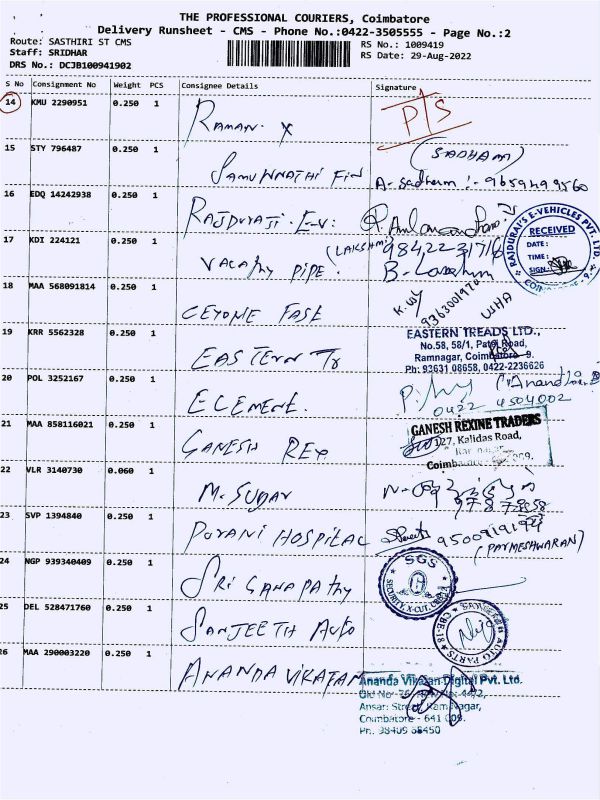 THE PROFESSIONAL COURIERS, Coimbatore
Delivery Runsheet - CMS - Phone No.:0422-3505555 - Page No.:2
Route: SASTHIRI ST CMS
Staff: SRIDHAR
DRS No.: DCJB100941902
RS No.: 1009419
RS Date: 29-Aug-2022
S No Consignment No Weight PCS Consignee Details Signature
14 KMU 2290951 0.250 1 RAMAN. X P/S
15 STY 796487 0.250 1 SAMUNNATHI FIN (SADHAM)
A. Sadham :- 9659499560
16 EDQ 14242938 0.250 1
RAJDURAI'S E-VEHICLES PVT. LTD.
RECEIVED
DATE:
TIME:
SIGN:
17 KDI 224121 0.250 1 PIPE. (LAKSHMI) 9842231716
18 MAA 568091814 0.250 1 9363001970
19 KRR 5562328 0.250 1 EASTERN Tr
EASTERN TREADS LTD.,
No.58, 58/1, Patel Road,
Ramnagar, Coimbatore - 9.
Ph: 93631 08658, 0422-2236626
20 POL 3252167 0.250 1 ELEMENT.
0422 4504002
21 MAA 858116021 0.250 1 GANESH REX
GANESH REXINE TRADERS
127, Kalidas Road,
Ram nagar,
Coimbatore 009.
22 VLR 3140730 0.060 1 M. SUDAR
23 SVP 1394840 0.250 1 PORANI HOSPILAL
(PARMESHWARAN)
24 NGP 939340409 0.250 1 SRI GANAPATHY
SGS
25 DEL 528471760 0.250 1 SANJEETH AUTO
AUTO PARTS
CBE-18
26 MAA 290003220 0.250 1 ANANDA VIKATAN
Ananda Vikatan Digital Pvt. Ltd.
Ansari Street, Ram Nagar,
Coimbatore - 641 009.
Ph. 38409 68450